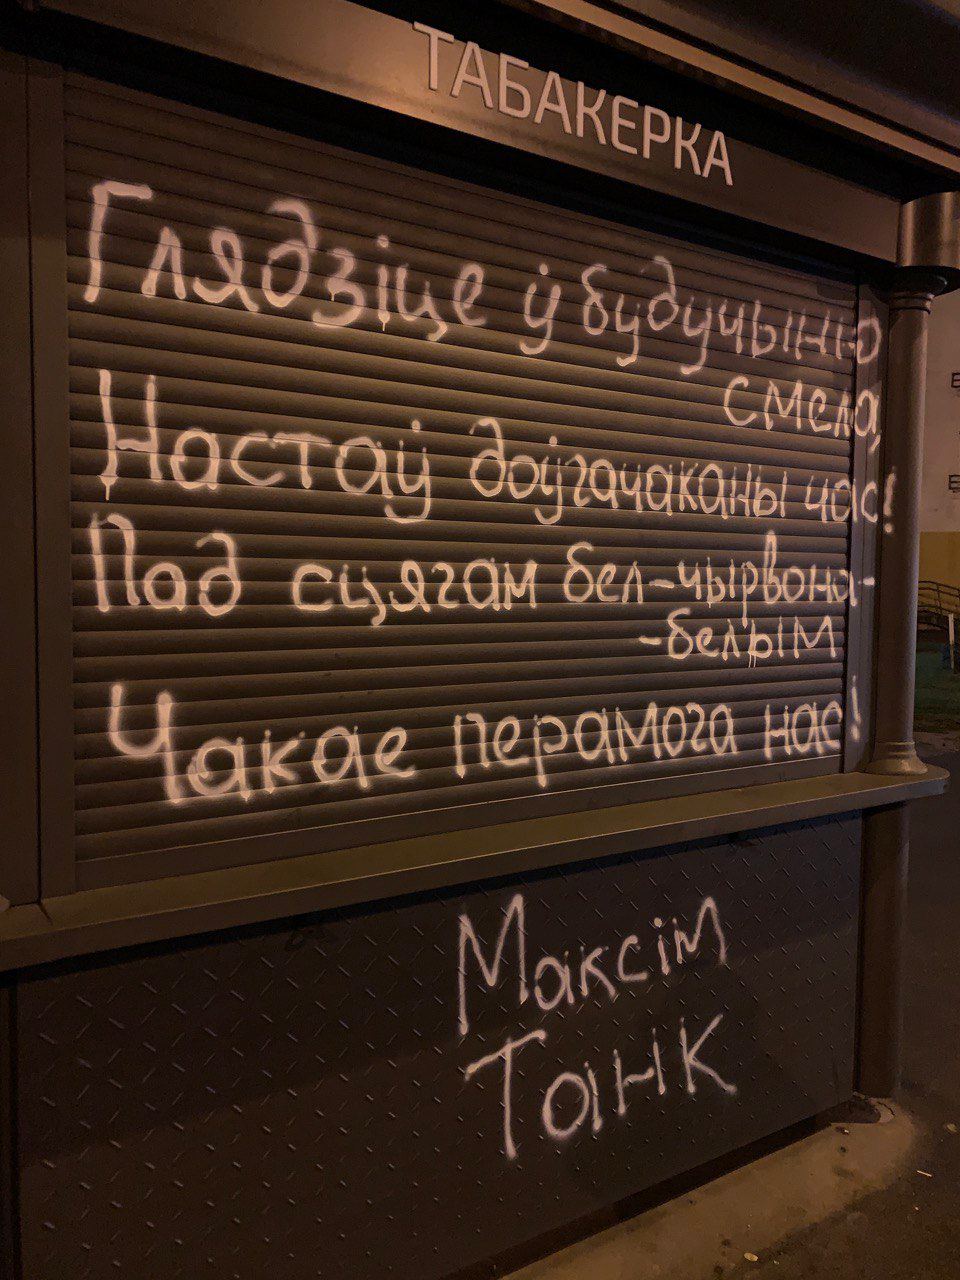 ТАБАКЕРКА
Глядзіце ў будучыню
смела,
Настаў доўгачаканы час!
Пад сцягам бел-чырвона-
-белым
Чакае перамога нас!
Максім
Танк